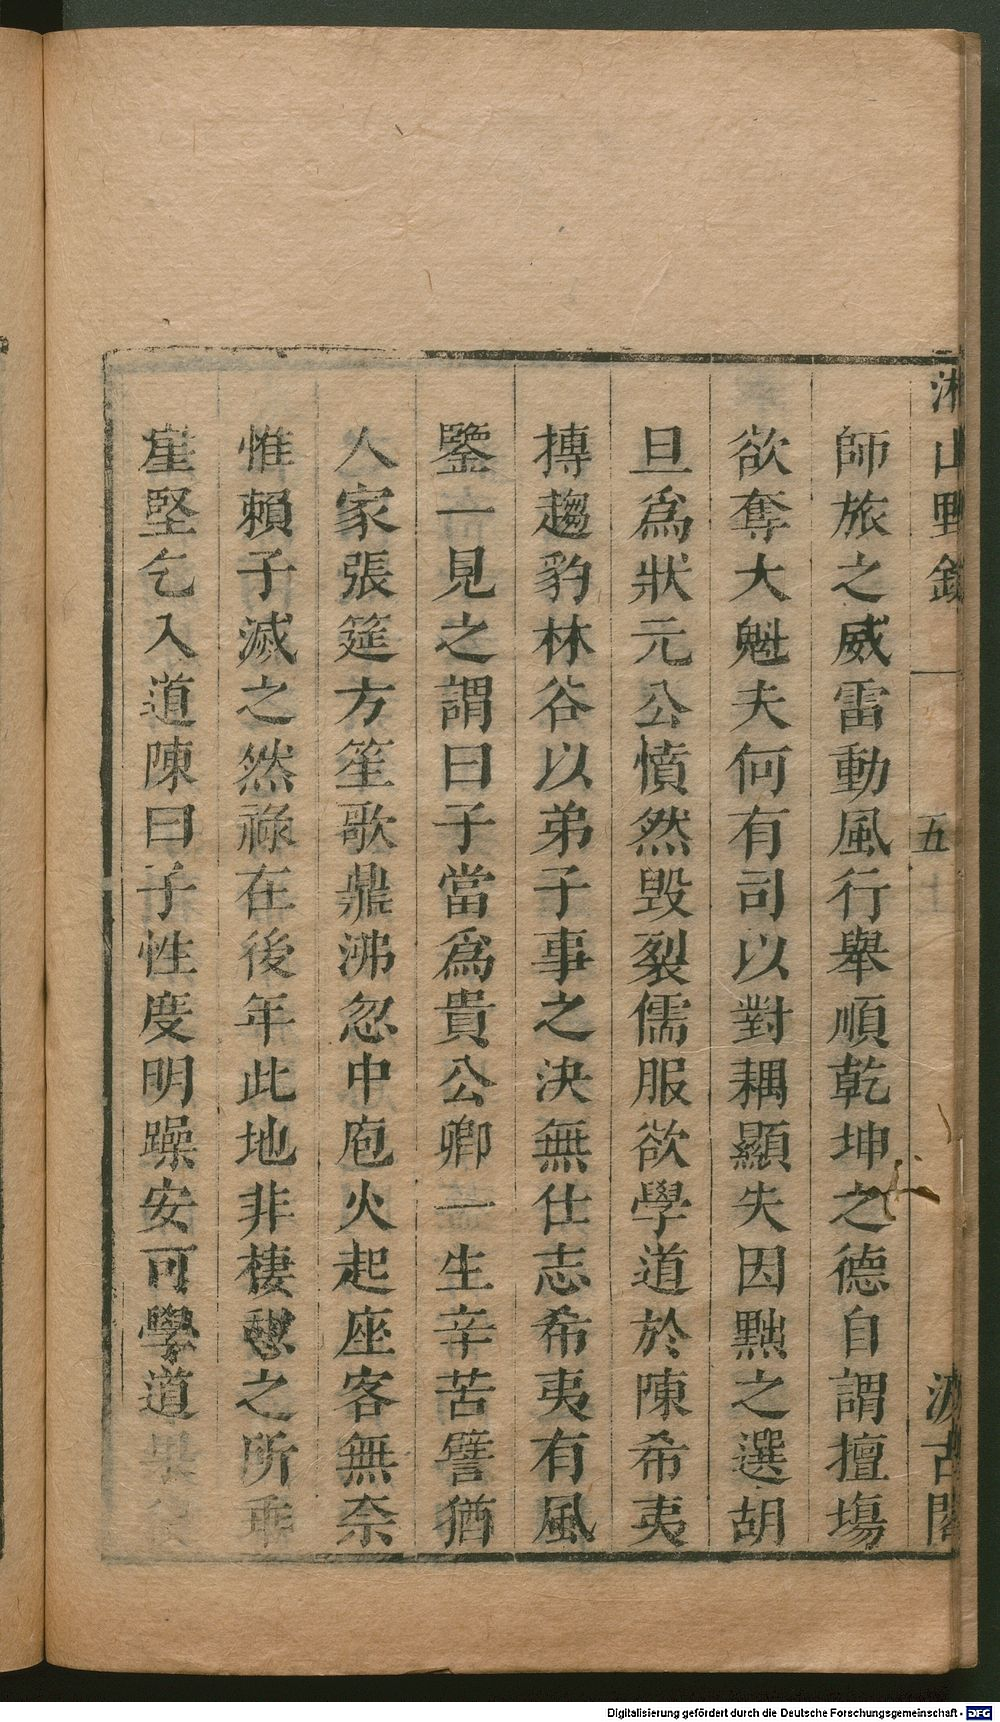 湘山野錄 五 汲古閣
師旅之威雷動風行舉順乾坤之德自謂擅塲
欲奪大魁夫何有司以對耦顯失因黜之選胡
旦爲狀元公憤然毀裂儒服欲學道於陳希夷
摶趨豹林谷以弟子事之決無仕志希夷有風
鑒一見之謂曰子當爲貴公卿一生辛苦譬猶
人家張筵方笙歌鼎沸忽中庖火起座客無奈
惟賴子滅之然祿在後年此地非棲憩之所乖
崖堅乞入道陳曰子性度明躁安可學道果後
Digitalisierung gefördert durch die Deutsche Forschungsgemeinschaft - DFG